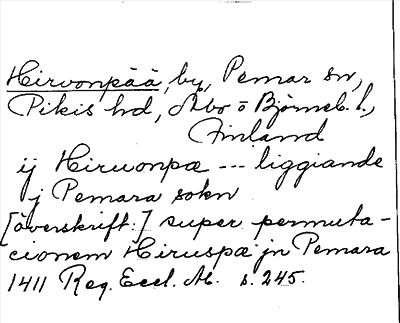 Hirvonpää, by, Pemar sn,
Pikis hd, Åbo o Björneb. l.,
Finland
ij Hiruonpæ --- liggiande
j Pemara sokn
[överskrift:] super permuta-
cionem Hiruspæ jn Pemara
1411 Reg. Eccl. Ab. s. 245.